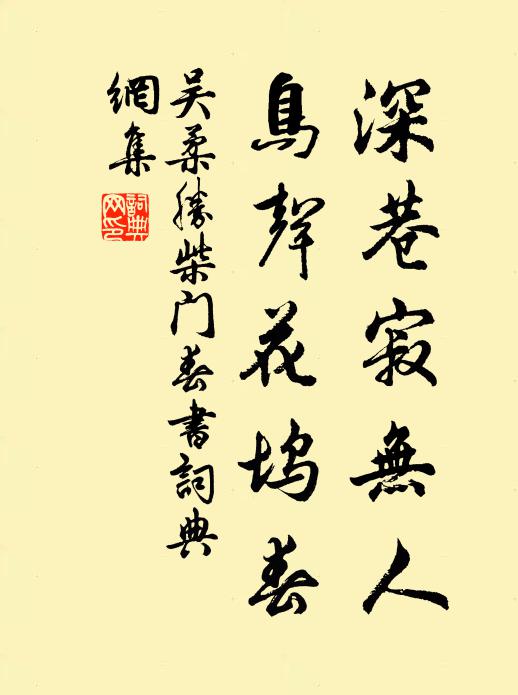 深巷寂無人
鳥聲花塢春
吴柔勝柴门春書詞典
網集
詞典网印